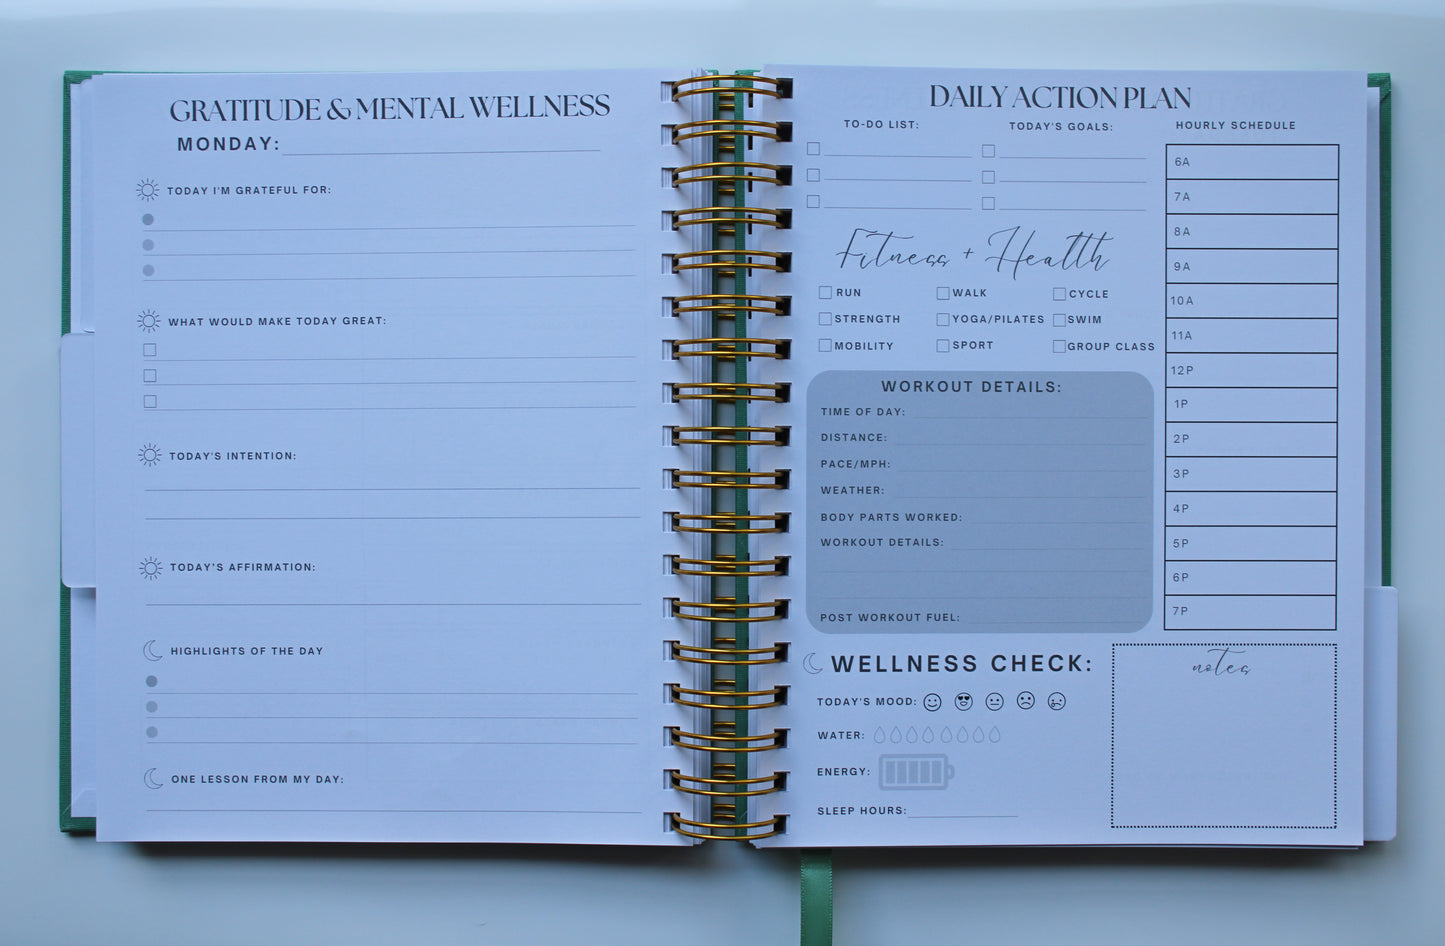 GRATITUDE & MENTAL WELLNESS
MONDAY:
TODAY I'M GRATEFUL FOR:
WHAT WOULD MAKE TODAY GREAT:
TODAY'S INTENTION:
TODAY'S AFFIRMATION:
HIGHLIGHTS OF THE DAY
ONE LESSON FROM MY DAY:
DAILY ACTION PLAN
TO-DO LIST:
TODAY'S GOALS:
HOURLY SCHEDULE
6A
7A
8A
9A
10A
11A
12P
1P
2P
3P
4P
5P
6P
7P
Fitness + Health
RUN WALK CYCLE
STRENGTH YOGA/PILATES SWIM
MOBILITY SPORT GROUP CLASS
WORKOUT DETAILS:
TIME OF DAY:
DISTANCE:
PACE/MPH:
WEATHER:
BODY PARTS WORKED:
WORKOUT DETAILS:
POST WORKOUT FUEL:
WELLNESS CHECK:
TODAY'S MOOD:
WATER:
ENERGY:
SLEEP HOURS:
notes